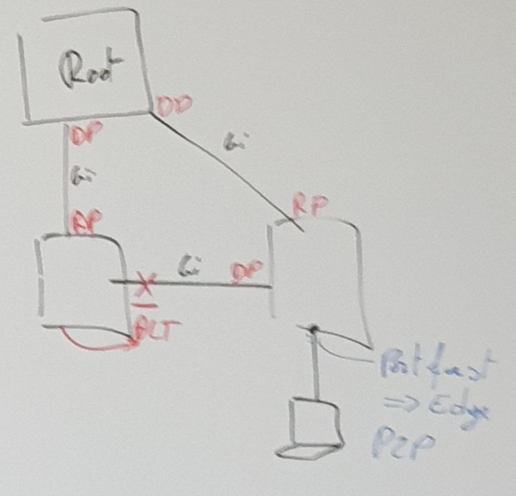 Root
DP
DP
Gi
Gi
RP
RP
Gi
DP
X
ALT
Portfast
=> Edge
P2P